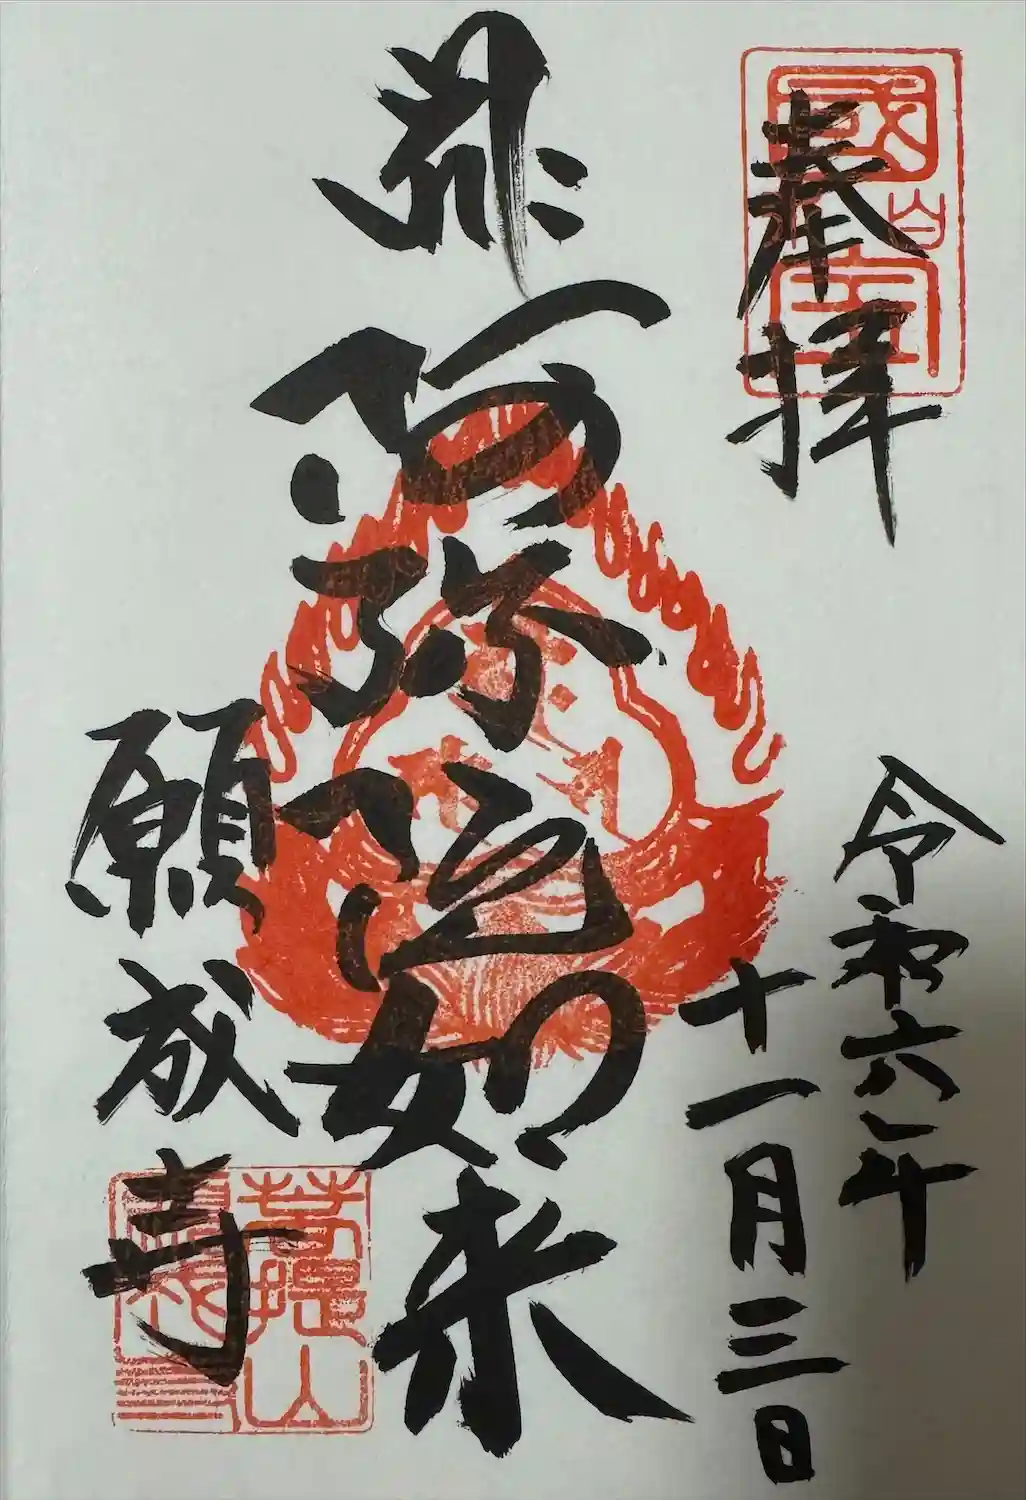 奉拝
令和六年
十一月三日
阿弥陀如来
願成寺
菩提山